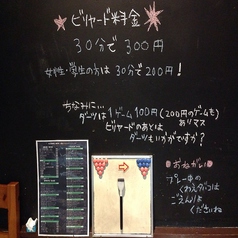 ビリヤード料金
30分で 300円
女性・学生の方は 30分で200円！
ちなみに…
ダーツは1ゲーム100円（200円のゲームも
ありマス
ビリヤードのあとは
ダーツもいかがですか？
おねがい
プレー中の
くわえタバコは
ごえんりょ
くださいね